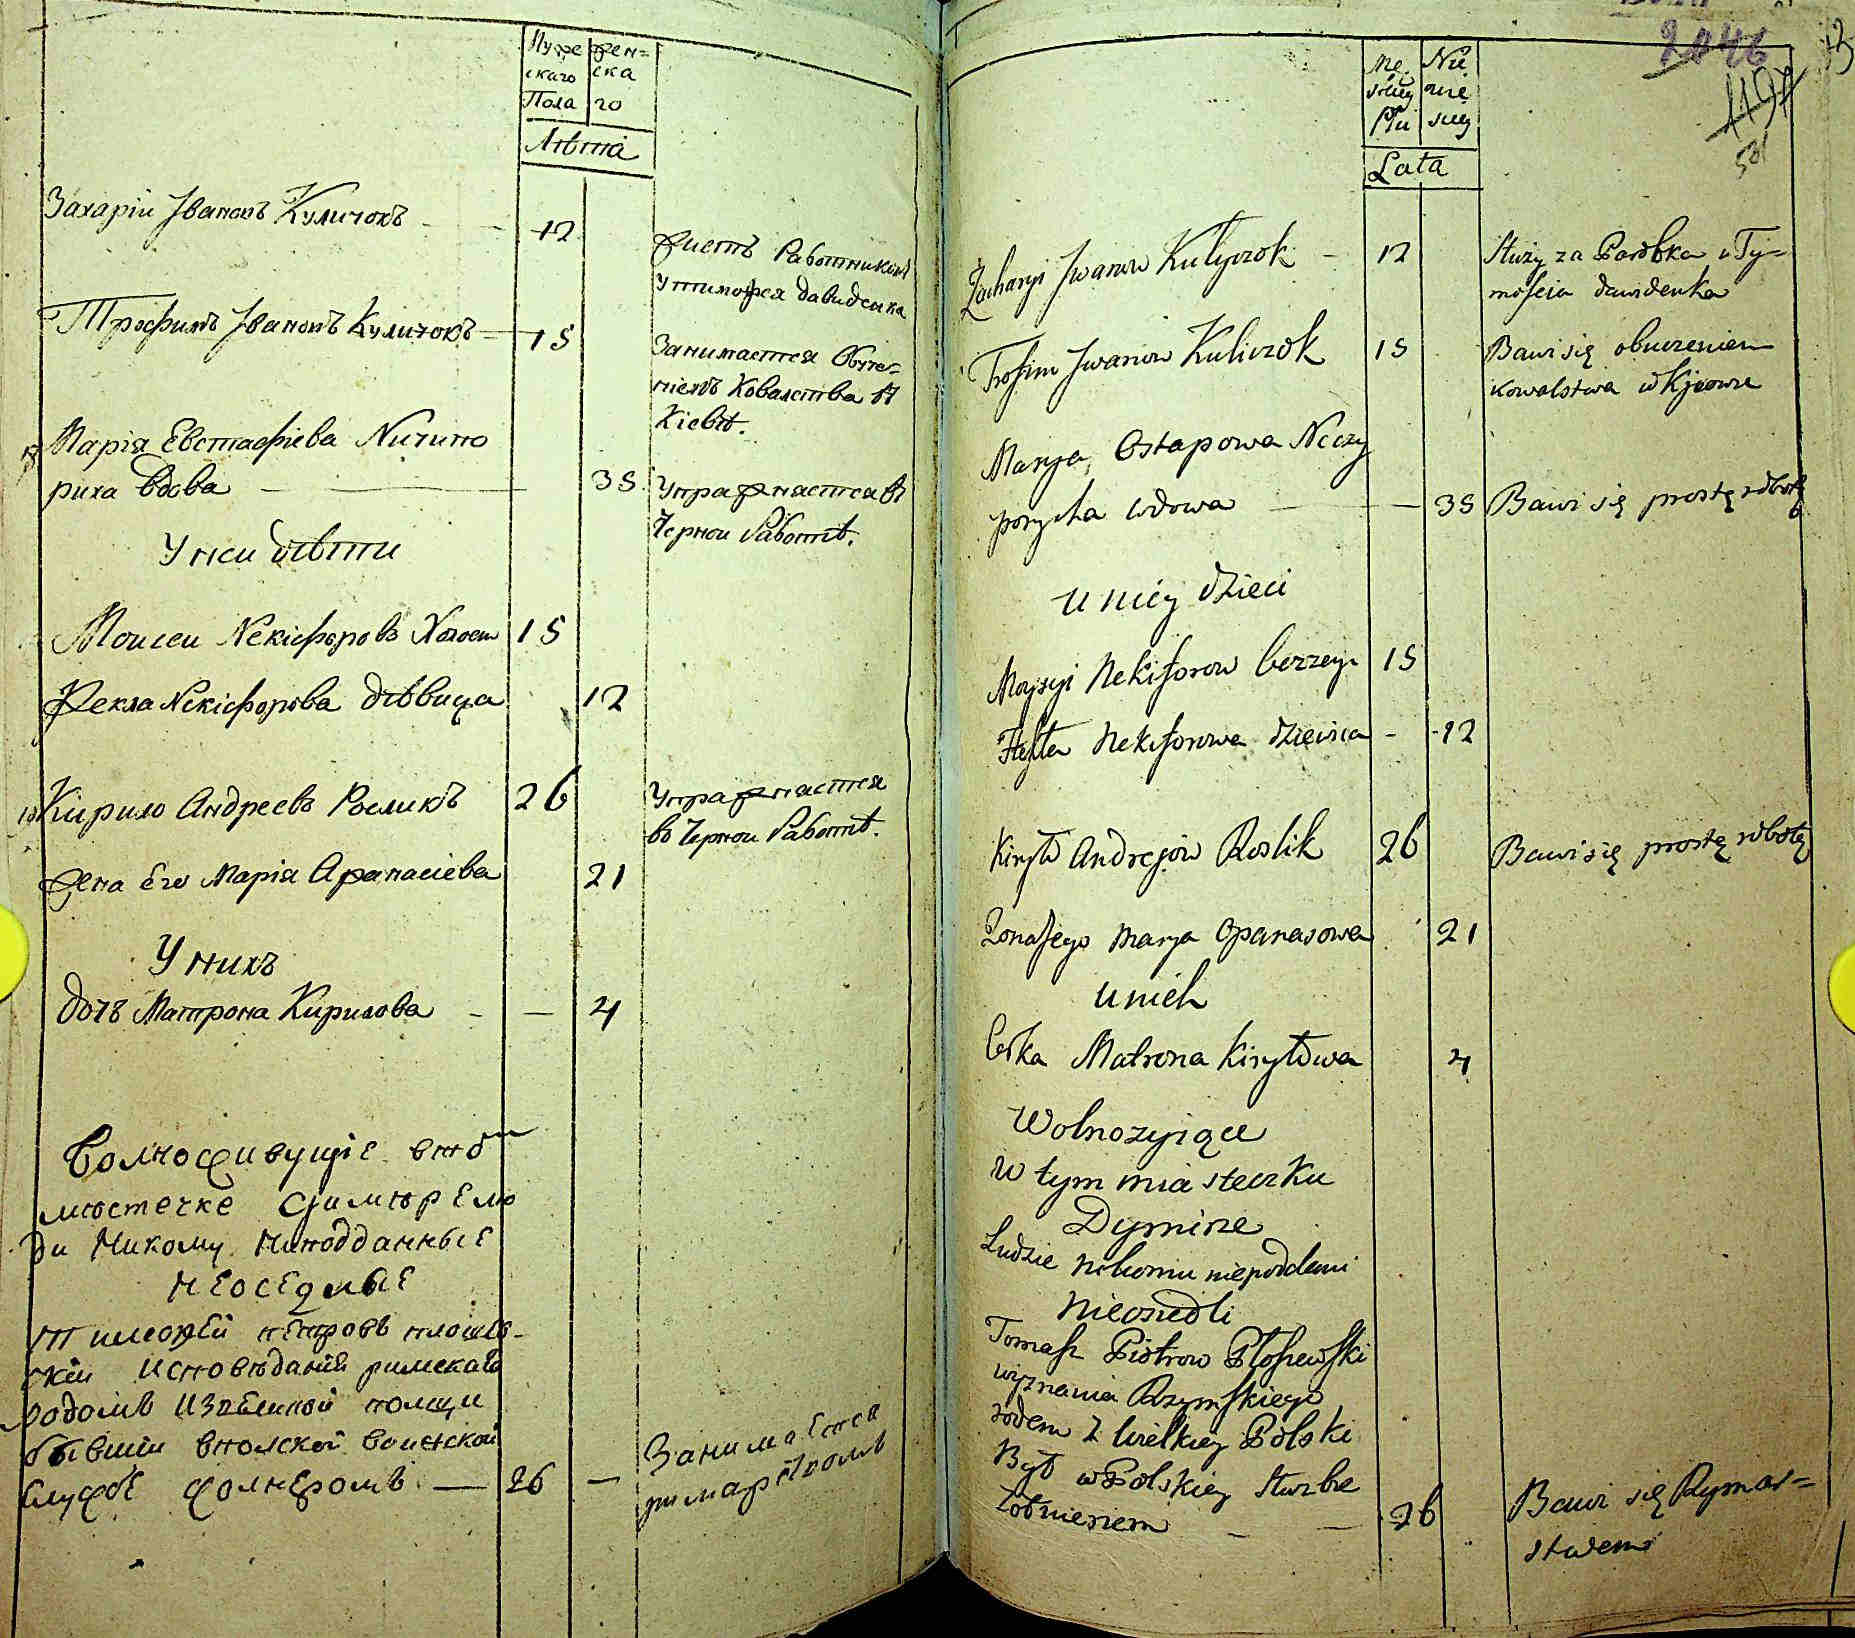 Муже жен=
скаго ска
Пола го
Лѣта
Захаріи Івановъ Куличокъ 12
Живетъ Работникомъ
у тимофея давиденка
Трофимъ Івановъ Куличокъ 15
Занимается Обуче=
ніемъ Ковалства въ
Кіевѣ.
Марія Евстафіева Ничипо
риха вдова 35
Упражняется въ
Черной Работѣ.
У неи дѣти
Моисеи Некіфоровъ Холост 15
Фекла Некіфорова дѣвица 12
Кирило Андреевъ Росликъ 26
Упражняется
во Черной Работѣ.
Жена Его Марія Афанасіева 21
У нихъ
дочъ Матрона Кирилова 4
Волноживущіе
местечке Димире лю
ди Никому неподданные
неоседлые
Тимофей Петровъ
скій исповѣданія римскаго
родомъ Изъ великой полщи
бывшій вполской воинской
службе жолнеромъ 26
Занимается
римарствомъ
2046
Mę Nie
skiey wie
Płci skiey
Lata
Zacharyi Iwanow Kulyczok 12
Służy za Parobka u Ty=
mofeia dawidenka
Trofim Iwanow Kuliczok 15
Bawi się obuczeniem
kowalstwa w Kijowie
Marya Ostapowa Neczy
porycha wdowa 35
Bawi się prostą robotą
u niey dzieci
Moysyi Nekiforow 15
Fekła Nekiforowa dziewica 12
Kiryło Andrejow Roslik 26
Bawi się prostą robotą
Żona Jego Marya Opanasowa 21
u nich
Córka Matrona Kiryłowa 4
Wolnożyiące
w tym miasteczku
Dymirze
Ludzie nikomu niepoddani
nieosiedli
Tomasz Piotrow Płoszewski
wyznania Rzymskiego
rodem z wielkiey Polski
Był w Polskiey służbie
żołnierzem 26
Bawi się Rymar=
stwem